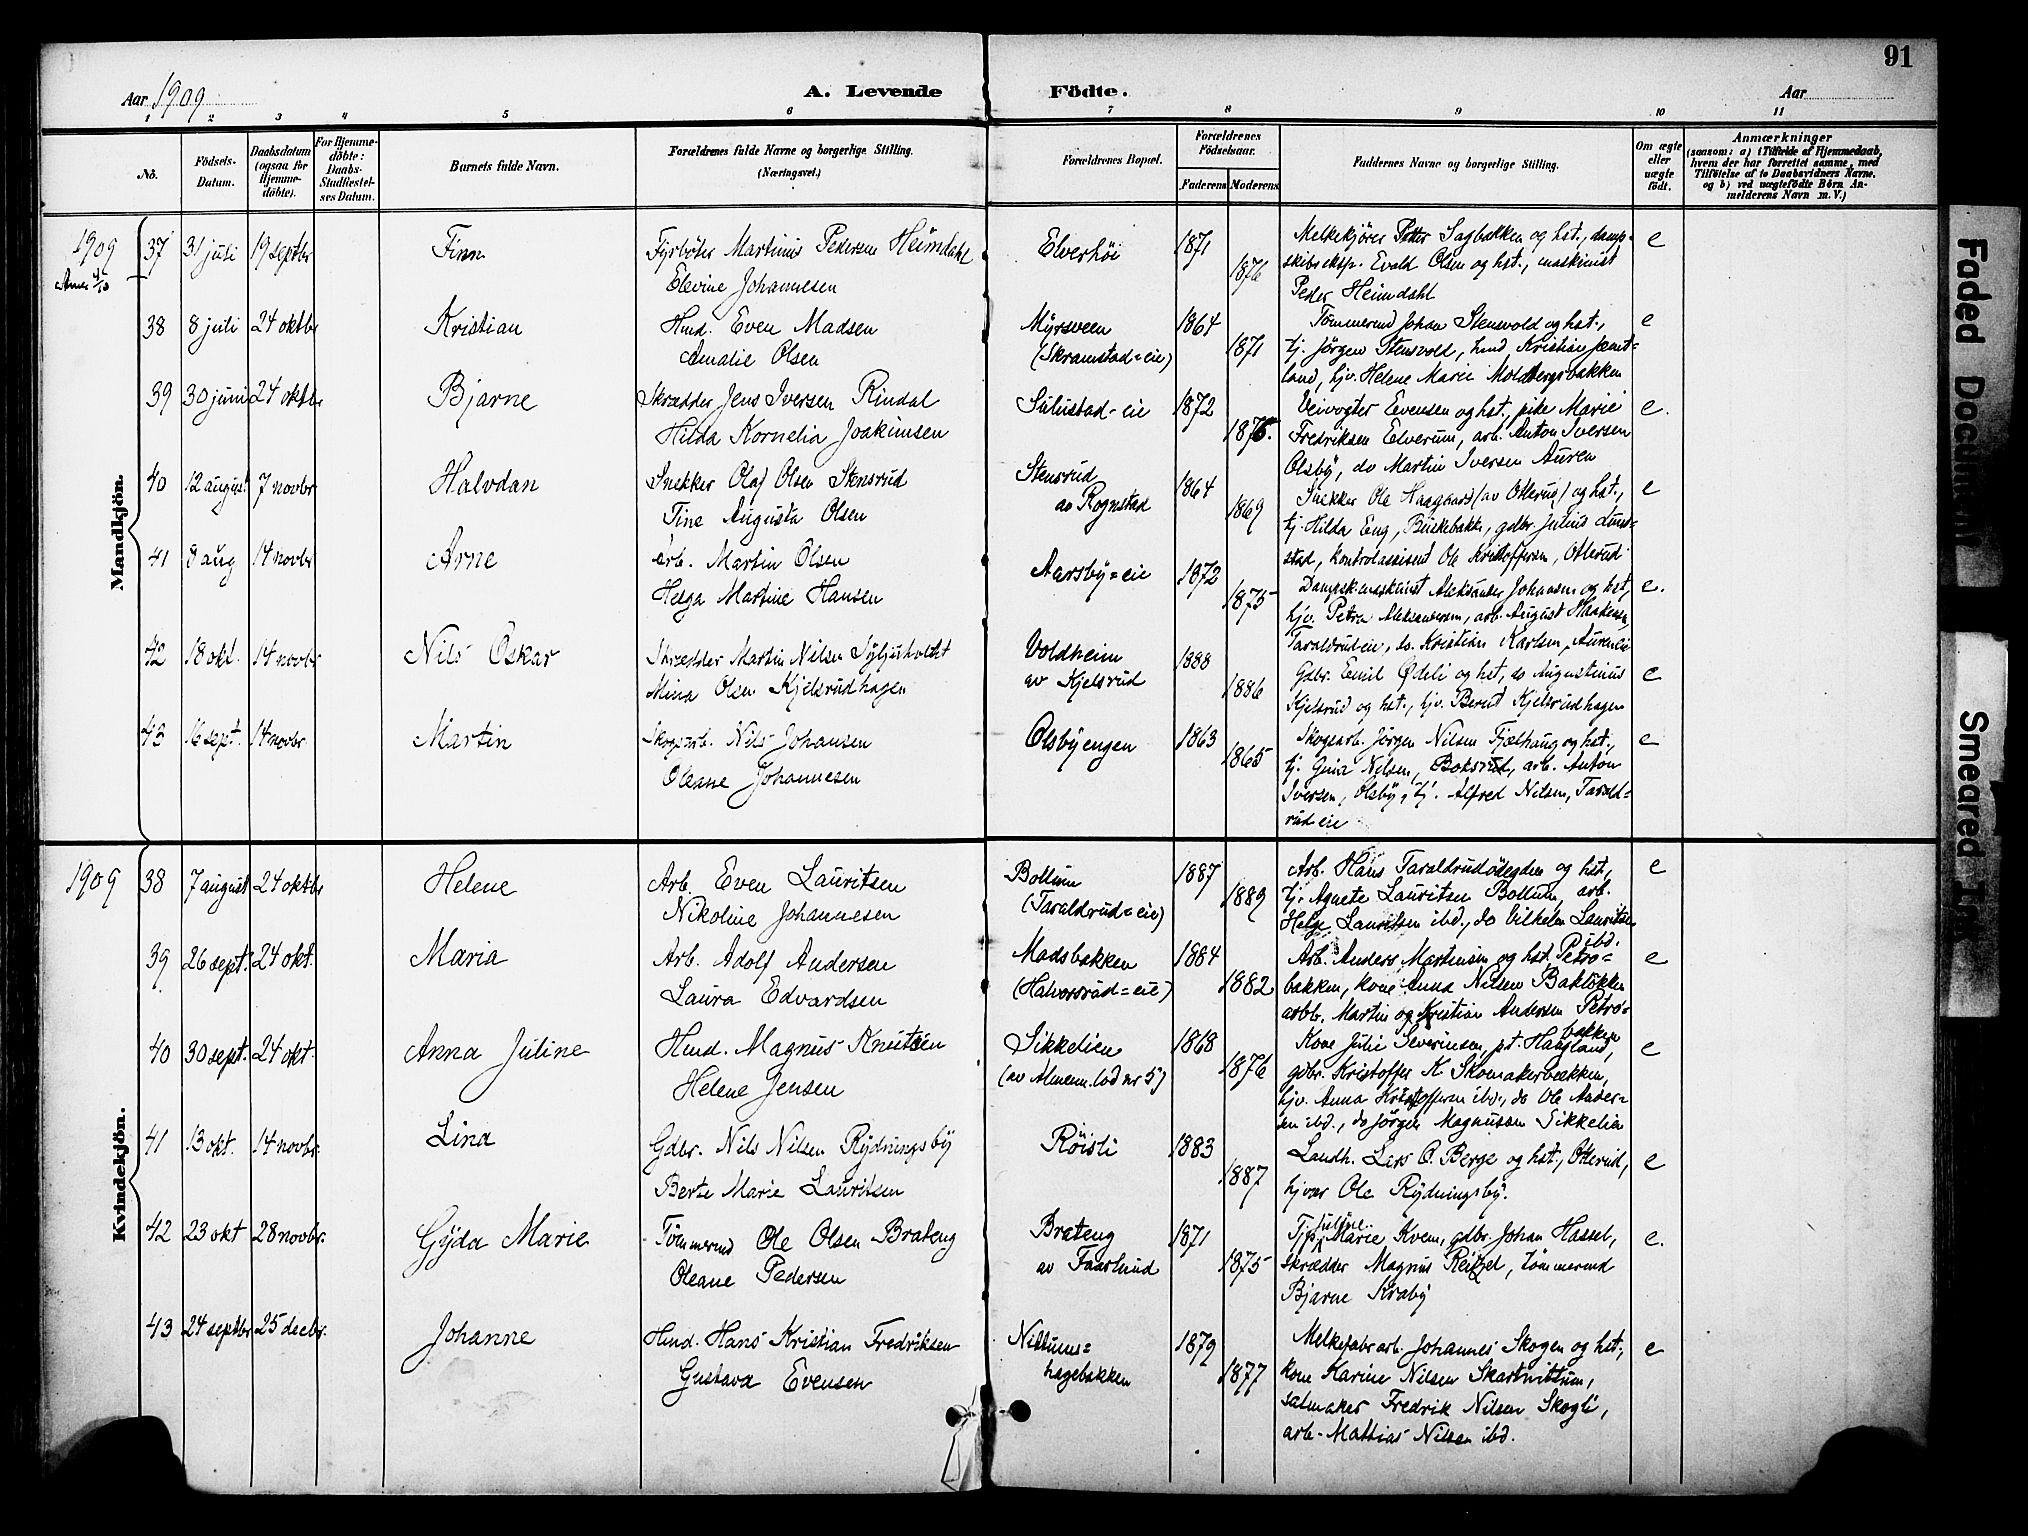 91
Aar 1909
A. Levende Födte.
Aar
1 2 3 4 5 6 7 8 9 10 11
No.
Födsels-Datum.
Daabsdatum (ogsaa for Hjemme-döbte).
For Hjemme-döbte: Daabs-Stadfæstel-ses Datum.
Barnets fulde Navn.
Forældrenes fulde Navne og borgerlige Stilling. (Næringsvei.)
Forældrenes Bopæl.
Forældrenes Födselsaar.
Faderens. Moderens.
Faddernes Navne og borgerlige Stilling.
Om ægte eller uægte födt.
Anmærkninger
(saasom: a) i Tilfælde af Hjemmedaab,
hvem der har forrettet samme, med
Tilföielse af to Daabsvidners Navne.
og b) ved uægtefödte Börn An-
melderens Navn m. V.)
Mandkjön.
1909
37 31 juli 19 septbr Finn
Fyrböter Martinus Pedersen Heimdahl
Elevine Johannesen
Elverhöi 1871 1876
Melkekjörer Petter Sagbakken og hst., damp-
skibseksp. Evald Olsen og hst., maskinist
Peder Heimdahl
e
38 8 juli 24 oktbr Kristian
Hmd. Even Madsen
Amalie Olsen
Myrsveen
(Skramstad=eie)
1864 1871
Tømmermd Johan Stensvold og hst.,
tj. Jørgen Stensvold, hmd Kristian Jæmt=
land, hjv. Helene Marie Moldbergsbakken
e
39 30 juni 24 oktbr Bjarne
Skrædder Jens Iversen Rindal
Hilda Kornelia Joakimsen
Sulustad-eie 1872 1875.
Veivogter Evensen og hst., pike Marie
Fredriksen Elverum, arb. Anton Iversen
Olsby, do Martin Iversen Auren
e.
40 12 august 7 novbr Halvdan
Snekker Olaf Olsen Stensrud
Tine Augusta Olsen
Stensrud
av Rognstad
1864 1869
Snekker Ole Haagaard (av Otterud) og hst.,
tj. Hilda Eng, Birkebakk, gdbr. Julius Lund-
stad, kontrolassistent Ole Kristoffersen, Otterud
e
41 8 aug 14 novbr Arne
Arb. Martin Olsen
Helga Martine Hansen
Aarsby=eie 1872 1875
Dampsk.maskinist Aleksander Johansen og hst,
hjv. Petra Aleksandersen, arb. August Haakensen
Taraldrudeie, do. Kristian Karlsen, Aureneie
e.
42 18 okt. 14 novbr Nils Oskar
Skrædder Martin Nilsen Syljuholtet
Mina Olsen Kjelsrudhagen
Voldheim
av Kjelsrud
1888 1886
Gdbr. Emil Ødeli og hst, do Augustinius
Kjelsrud og hst., hjv. Bernt Kjelsrudhagen
e
43 16 sept. 14 novbr Martin
Skogsarb. Nils Johansen
Oleane Johannesen
Olsbyengen 1863 1865
Skogsarb. Jørgen Nilsen Fjælhaug og hst.,
tj. Gina Nilsen, Boksrud, arb. Anton
Iversen, Olsby, tj. Alfred Nilsen, Tarald=
rudeie
e
Kvindekjön.
1909
38 7 august 24 oktbr Helene
Arb. Even Lauritsen
Nikoline Johannesen
Bollum
(Taraldrud=eie)
1887 1889
Arb. Hans Taraldrudødegden og hst,
tj. Agnete Lauritsen Bollum, arb.
Helge Lauritsen ibd., do Vilhelm Lauritsen
ibd.
e
39 26 sept. 24 okt. Maria
Arb. Adolf Andersen
Laura Edvardsen
Madsbakken
(Halvorsrud=eie)
1884 1882
Arb. Anders Martinsen og hst. Petro=
bakken, kone Anna Nilsen Bakløkken
arbb. Martin og Kristian Andersen Petro-
bakken
e
40 30 sept. 24 okt. Anna Juline
Hmd. Magnus Knutsen
Helene Jensen
Sikkelien
(av Almenn. lod nr 5)
1868 1876
Kone Julie Severinsen, pt. Haugland,
gdbr. Kristoffer K Skomakerbækken,
hjv. Anna Kristoffersen ibd., do Ole Ander-
sen ibd., do Jørgen Magnussen Sikkelia
e
41 13 okt. 14 novbr. Lina
Gdbr. Nils Nilsen Rydningsby
Berte Marie Lauritsen
Röisli 1883 1887
Landh. Lars O. Berge og hst., Otterud,
hjvær Ole Rydningsby.
e
42 23 okt 28 novbr. Gyda Marie
Tömmermd Ole Olsen Brateng
Oleane Pedersen
Brateng
av Faarlund
1871 1875
Juline
Marie Kvem, gdbr. Johan Hassel,
skrædder Magnus Reitzel, tømmermd
Bjarne Kraby
e.
43 24 septbr 25 decbr. Johanne
Hmd. Hans Kristian Fredriksen
Gustava Evensen
Nettum=
hagebakken
1879 1877
Melkefabr.arb. Johannes Skogen og hst.,
kone Karine Nilsen Skartvittum,
salmaker Fredrik Nilsen Skogli,
arb. Mattias Nilsen ibd.
e
Faded Document
Smeared Ink